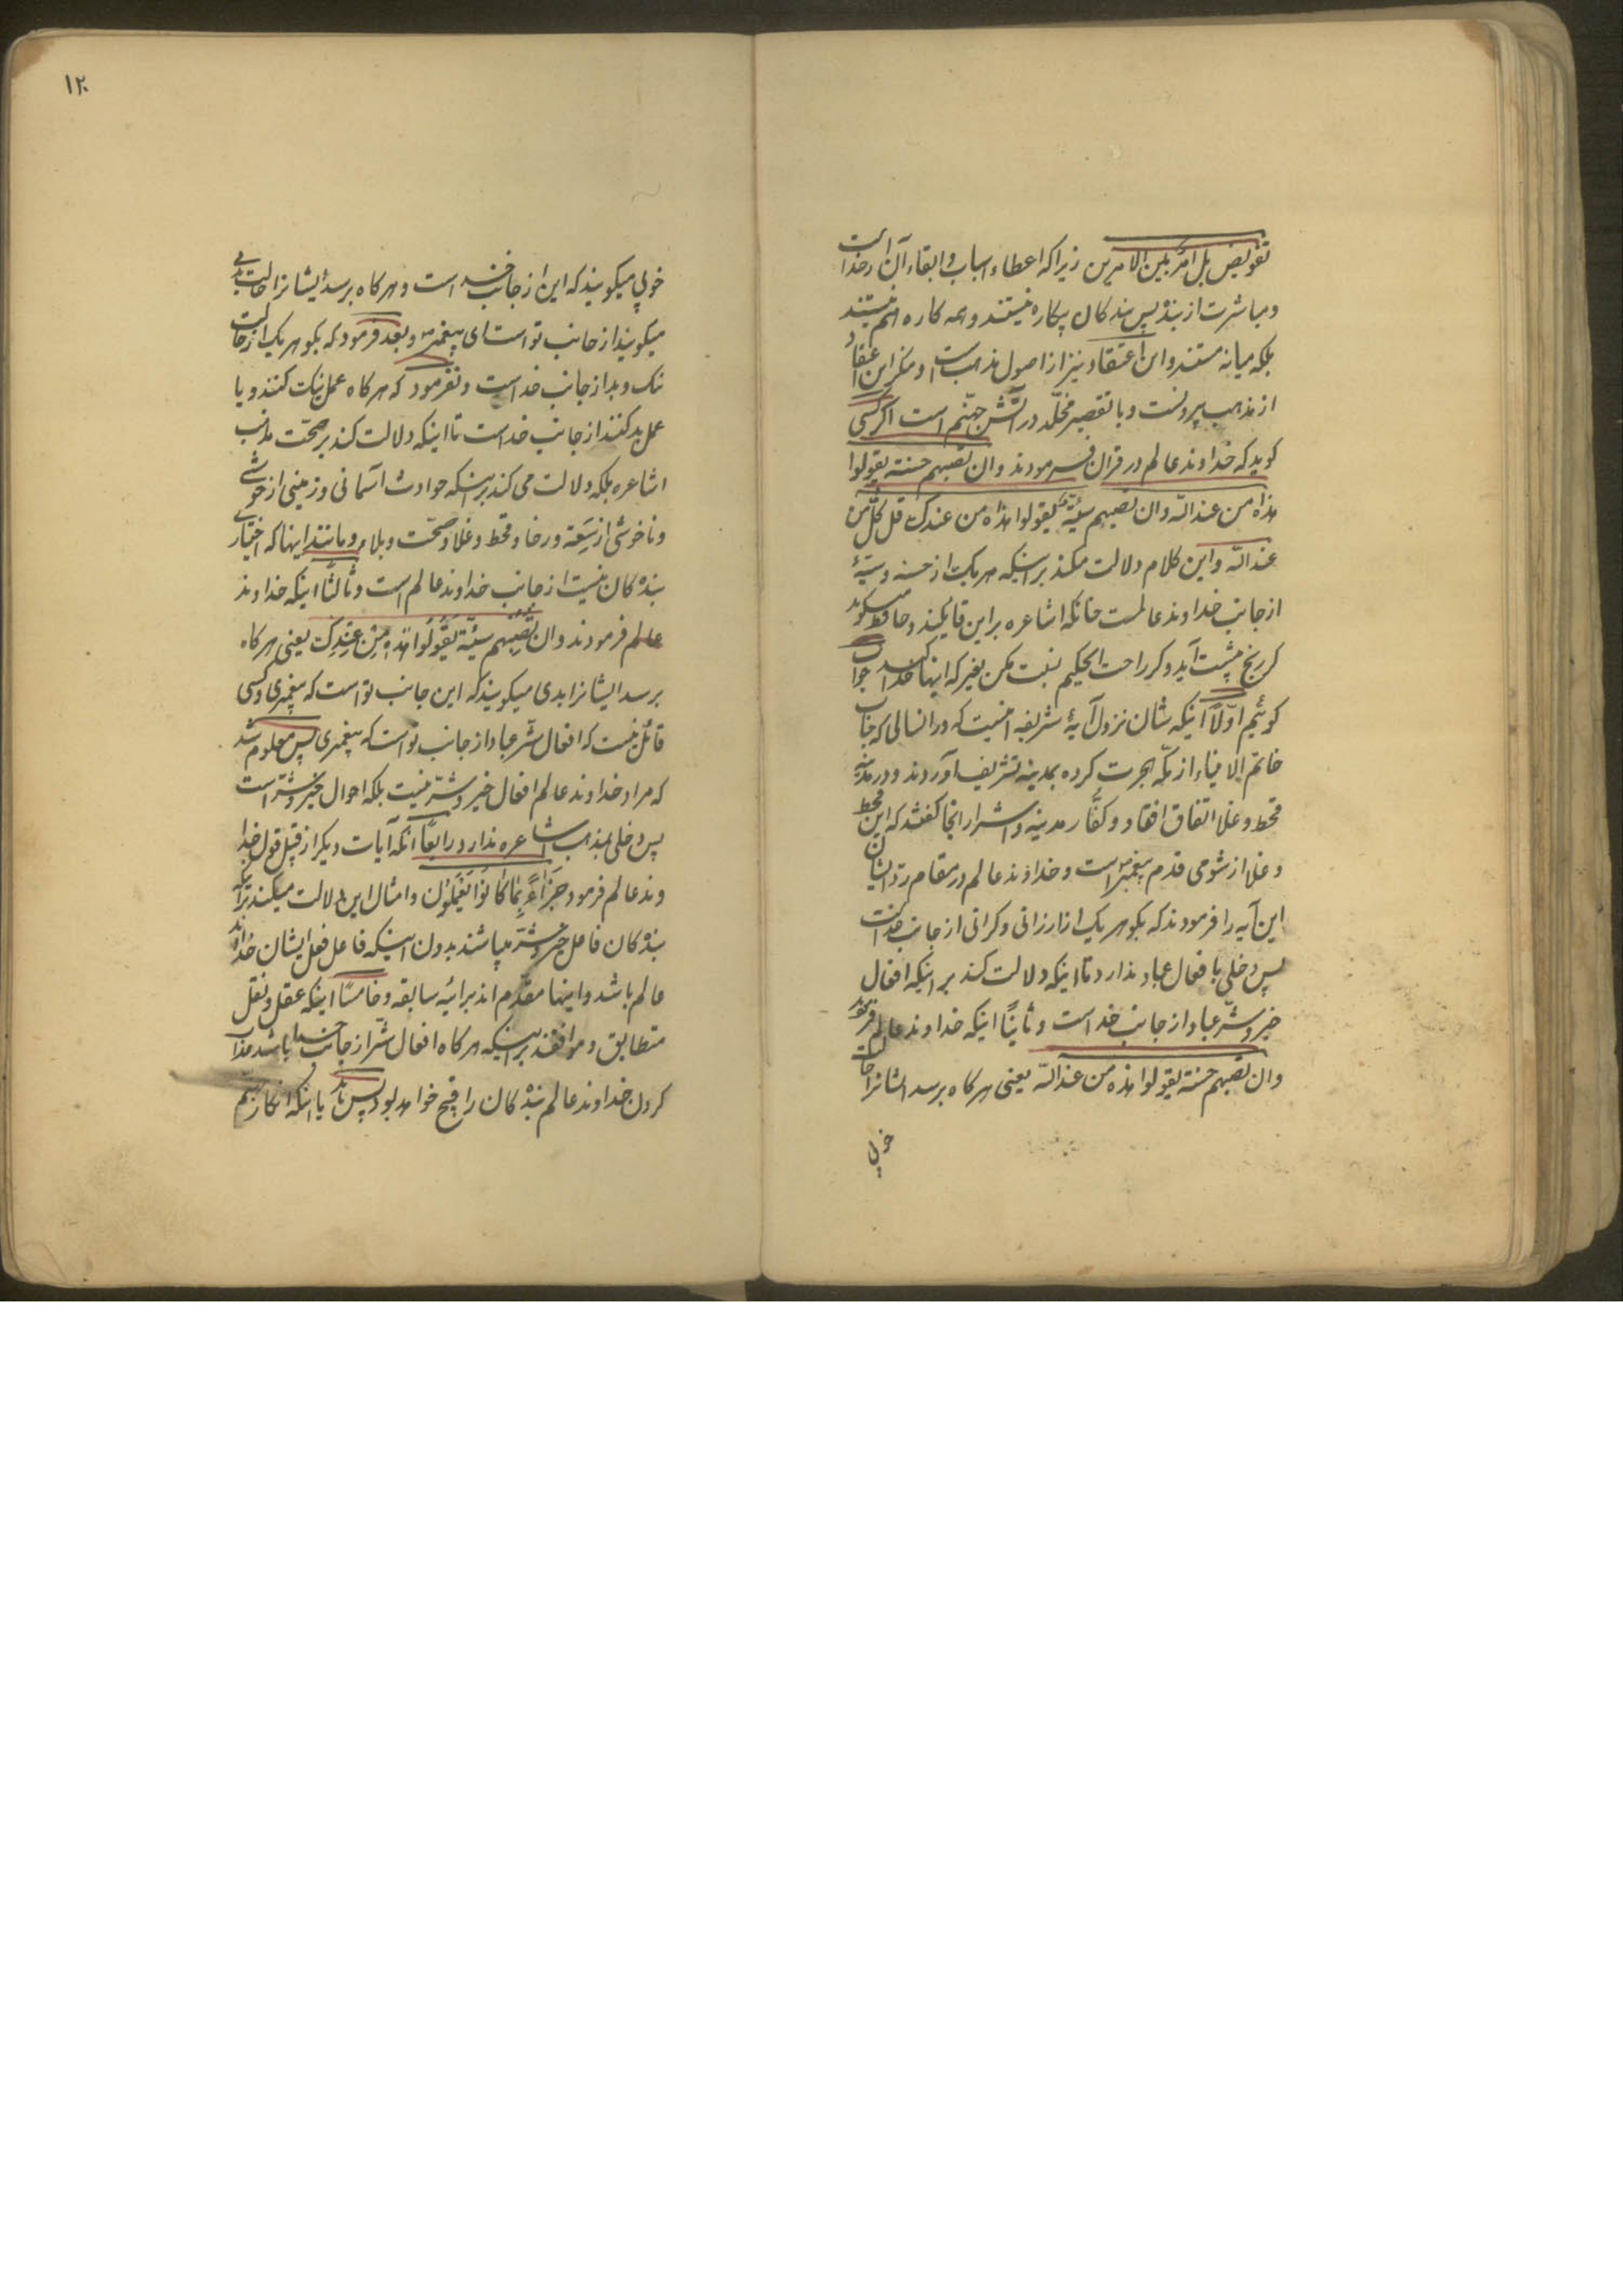 تفویض بل امر بین الامرین زیرا که اعطاء اسباب و ابقاء آن از خدا است
و مباشرت از بنده پس بندکان بیکاره نیستند و همه کاره هم نیستند
بلکه میانه هستند و این اعتقاد نیز از اصول مذهب است و منکر این اعتقاد
از مذهب بیرونست و با تقصیر مخلّد در آتش جهنّم است اکر کسی
کوید که خداوند عالم در قرآن فرمودند و ان تصبهم حسنة یقولوا
هذه من عند اللّه و ان تصبهم سیّئة یقولوا هذه من عندک قل کلّ من
عند اللّه و این کلام دلالت میکند بر اینکه هر یک از حسنه و سیّئه
از جانب خداوند عالمست چنانکه اشاعره بر این قایلند و حافظ میکوید
کر رنج پیشت آید و کر راحت ای حکیم نسبت مکن بغیر که اینها خدا کند جواب
کوئیم اوّلاً اینکه شان نزول آیهٔ شریفه اینست که در انسالی که جناب
خاتم الانبیاء از مکّه هجرت کرده بمدینه تشریف آوردند و در مدینه
قحط و غلا اتفاق افتاد و کفّار مدینه و اشرار انجا کفتند که این قحط
و غلا از شومی قدم پیغمبر است و خداوند عالم در مقام ردّ ایشان
این آیه را فرمودند که بکو هر یک از ارزانی و کرانی از جانب خدا است
پس دخلی بافعال عباد ندارد تا اینکه دلالت کند بر اینکه افعال
خیر و شرّ عباد از جانب خدا است و ثانیاً اینکه خداوند عالم فرمود
و ان تصبهم حسنة یقولوا هذه من عند اللّه یعنی هر کاه برسد ایشانرا حالت
خوبی
۱۲۰
خوبی میکویند که این از جانب خدا است و هر کاه برسد ایشانرا حالت بدی
میکویند از جانب تو است ای پیغمبر و بعد فرمود که بکو هر یک از حالت
نیک و بد از جانب خدا است و نفرمود که هر کاه عمل نیک کنند و یا
عمل بد کنند از جانب خدا است تا اینکه دلالت کند بر صحّت مذهب
اشاعره بلکه دلالت می کند بر اینکه حوادث آسمانی و زمینی از خوشی
و ناخوشی از سَعَة و رخا و قحط و غلا و صحّت و بلا و مانند اینها که اختیاری
بندکان نیست از جانب خداوند عالم است و ثالثاً اینکه خداوند
عالم فرمودند و ان تُصِبْهم سَیّئة یَقُولُوا هذِه مِن عِندِک یعنی هر کاه
برسد ایشانرا بدی میکویند که این جانب تو است که پیغمبری و کسی
قائل نیست که افعال شرّ عباد از جانب تو است که پیغمبری پس معلوم شد
که مراد خداوند عالم افعال خیر و شرّ نیست بلکه احوال خیر و شرّ است
پس دخلی بمذهب اشاعره ندارد و رابعاً انکه آیات دیکر از قبیل قول خدا
وند عالم فرمود جَزآءً بِمٰا کٰانُوا یَعْمَلُون و امثال این دلالت میکنند بر آنکه
بندکان فاعل خیر و شرّ میباشند بدون اینکه فاعل فعل ایشان خداوند
عالم باشد و اینها مقدّم اند بر ایهٔ سابقه و خامساً اینکه عقل و نقل
متطابق و موافقند بر اینکه هر کاه افعال شرّ از جانب خدا باشد عذاب
کردن خداوند عالم بندکان را قبیح خواهد بود پس باید یا اینکه انکار کنیم